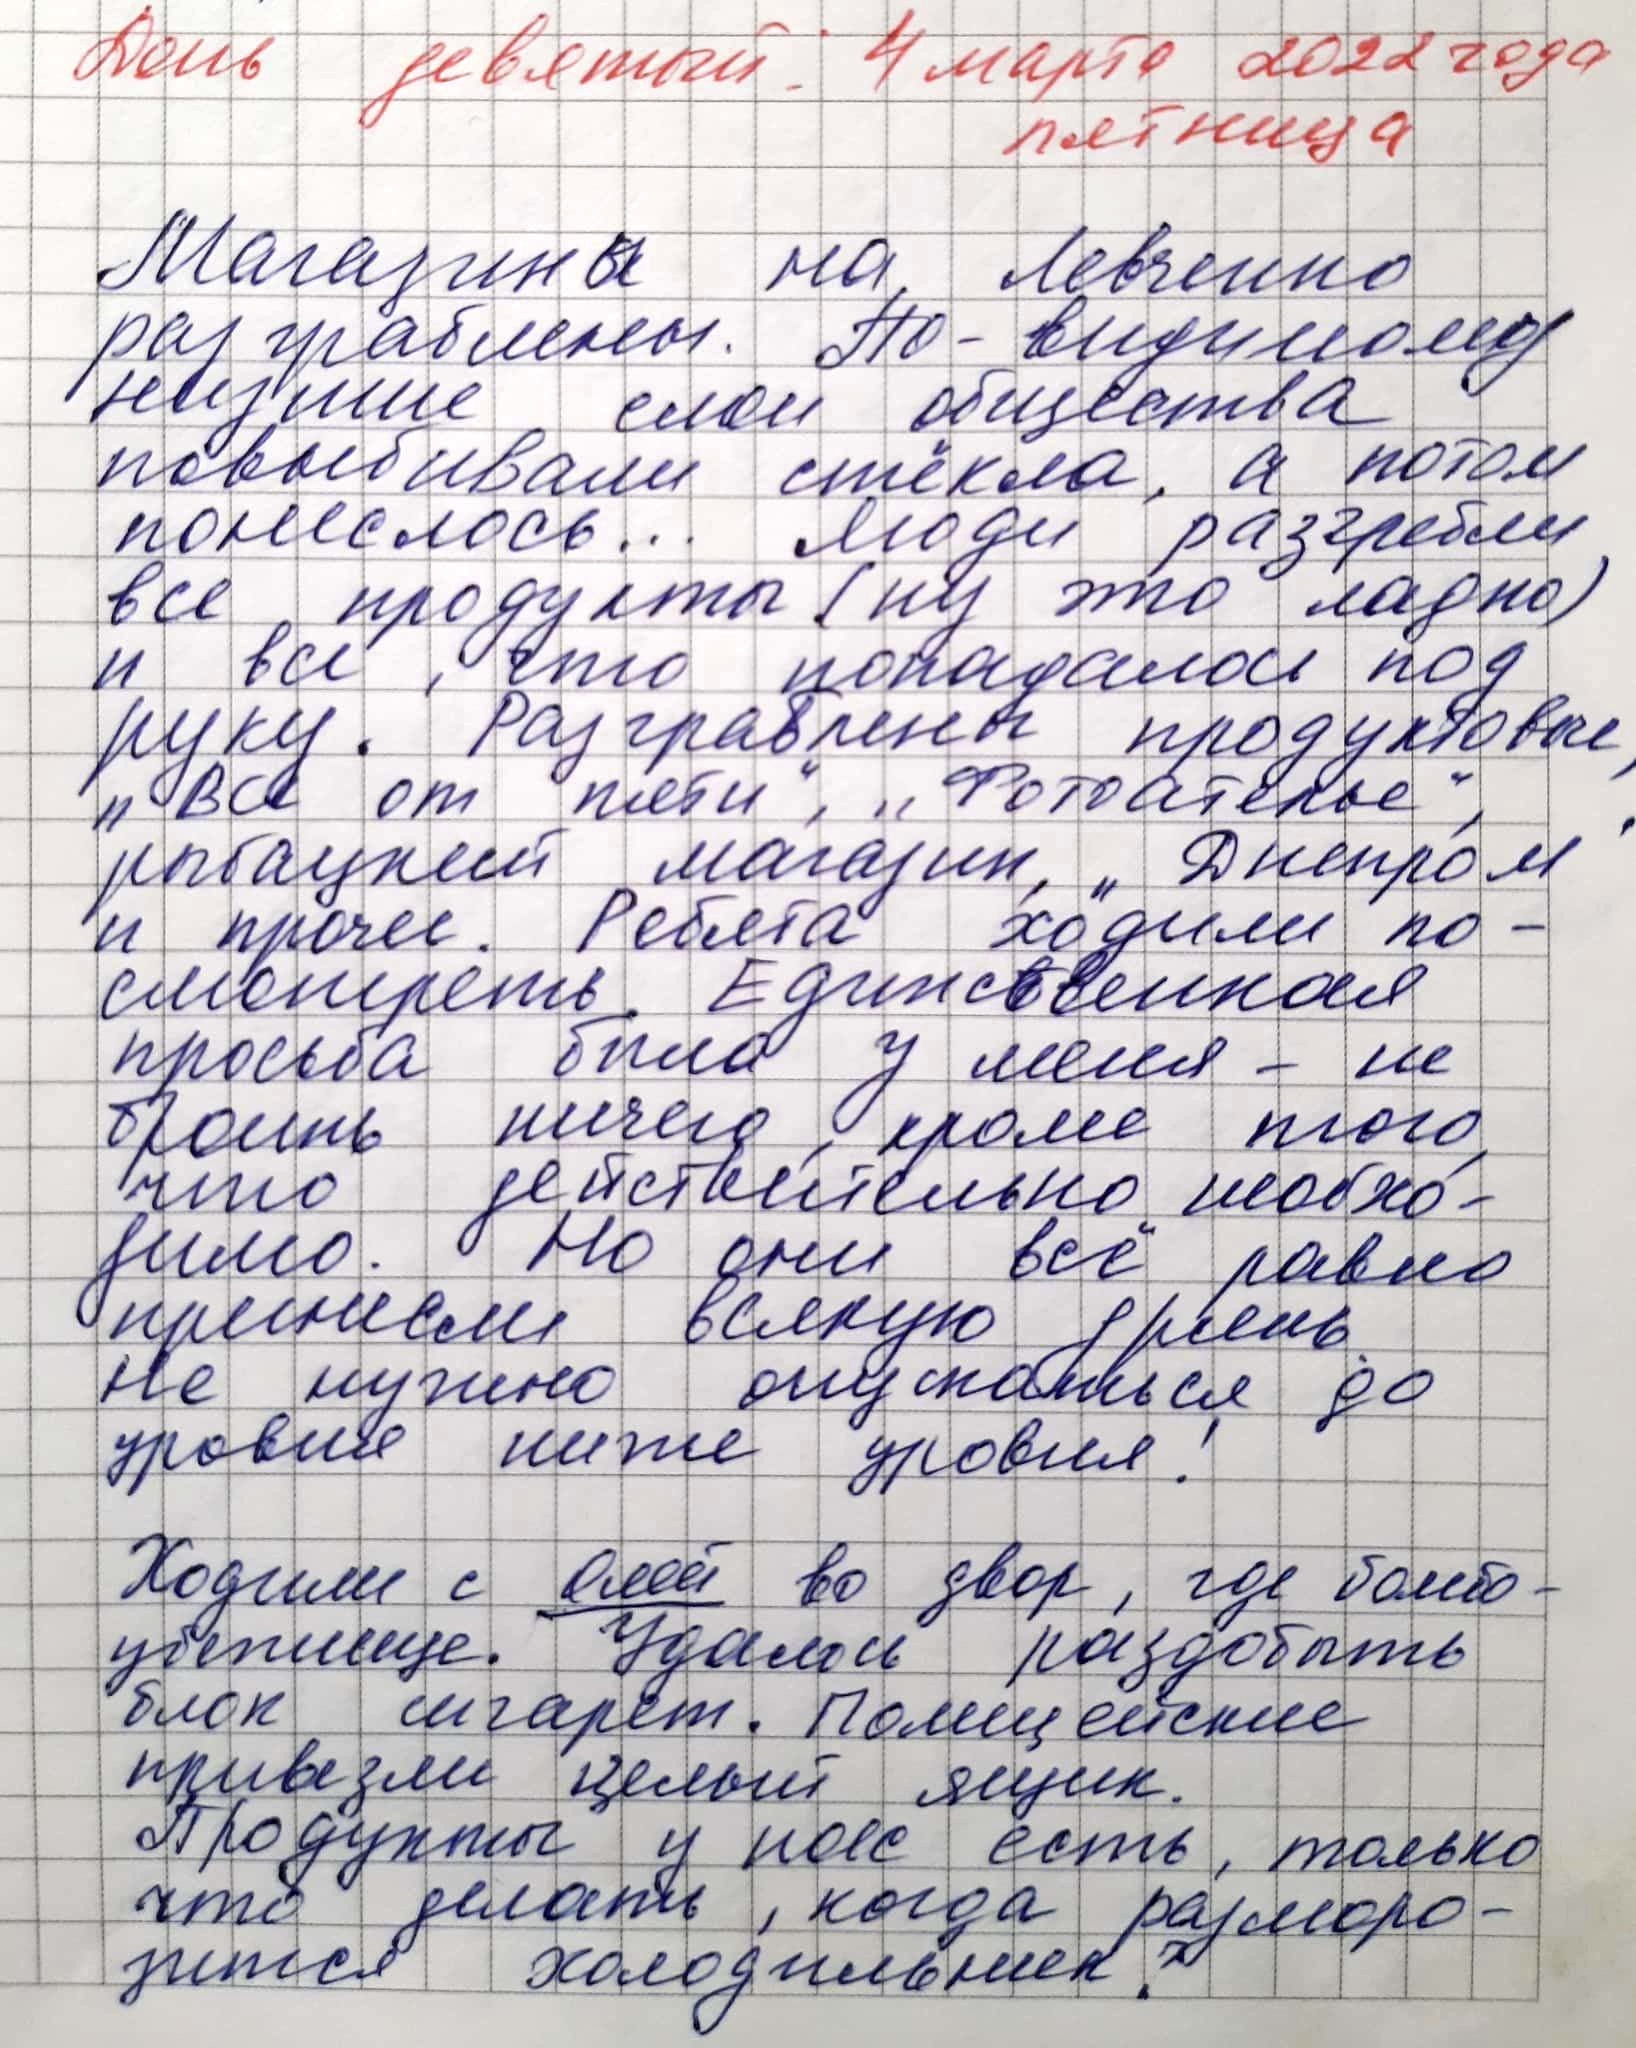 День девятый: 4 марта 2022 года
пятница
Магазины на Левченко
разграблены. По-видимому
низшие слои общества
повыбивали стёкла, а потом
понеслось... Люди разгребли
все продукты (ну это ладно)
и все, что попадалось под
руку. Разграблены продуктовые,
„Все от пяти“, „Фотоателье“,
рыбацкий магазин, „Днепром“
и прочее. Ребята ходили по-
смотреть. Единственная
просьба была у меня – не
брать ничего, кроме того,
что действительно необхо-
димо. Но они всё равно
принесли всякую дрянь.
Не нужно опускаться до
уровня ниже уровня!
Ходили с Олей во двор, где бомбо-
убежище. Удалось раздобыть
блок сигарет. Полицейские
привезли целый ящик.
Продукты у нас есть, только
что делать, когда разморо-
зится холодильник?